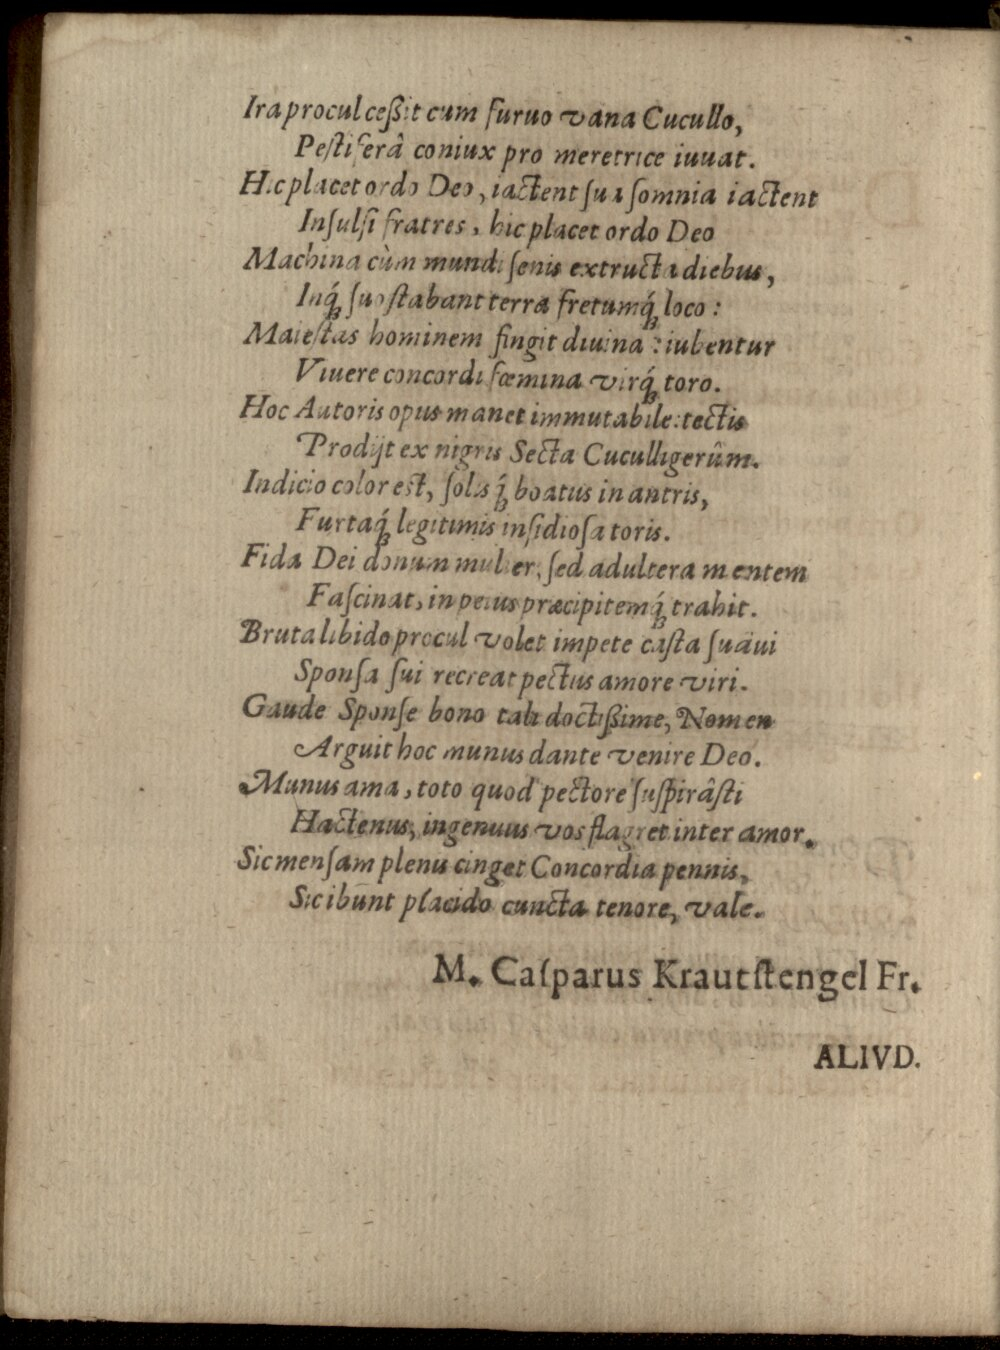 Ira procul ceßit cum furuo vana Cucullo,
Pestiferâ coniux pro meretrice iuuat.
Hic placet ordo Deo, iactent sua somnia iactent
Insulsi fratres, hic placet ordo Deo
Machina cùm mundi senis extructa diebus,
Inq́; suo stabant terra fretumq́; loco:
Maiestas hominem fingit diuina: iubentur
Viuere concordi fœmina virq́; toro.
Hoc Autoris opus manet immutabile: tectis
Prodijt ex nigris Secta Cuculligerûm.
Indicio color est, solis q́; boatus in antris,
Furtaq́; legitimis insidiosa toris.
Fida Dei donum mulier, sed adultera mentem
Fascinat, in peius præcipitemq́; trahit.
Bruta libido procul volet impete casta suaui
Sponsa sui recreat pectus amore viri.
Gaude Sponse bono tali doctißime, Nomen
Arguit hoc munus dante venire Deo.
Munus ama, toto quod pectore suspirâsti
Hactenus, ingenuus vos flagret inter amor.
Sic mensam plenis cinget Concordia pennis,
Sic ibunt placido cuncta tenore, vale.
M. Casparus Krautstengel Fr.
ALIVD.